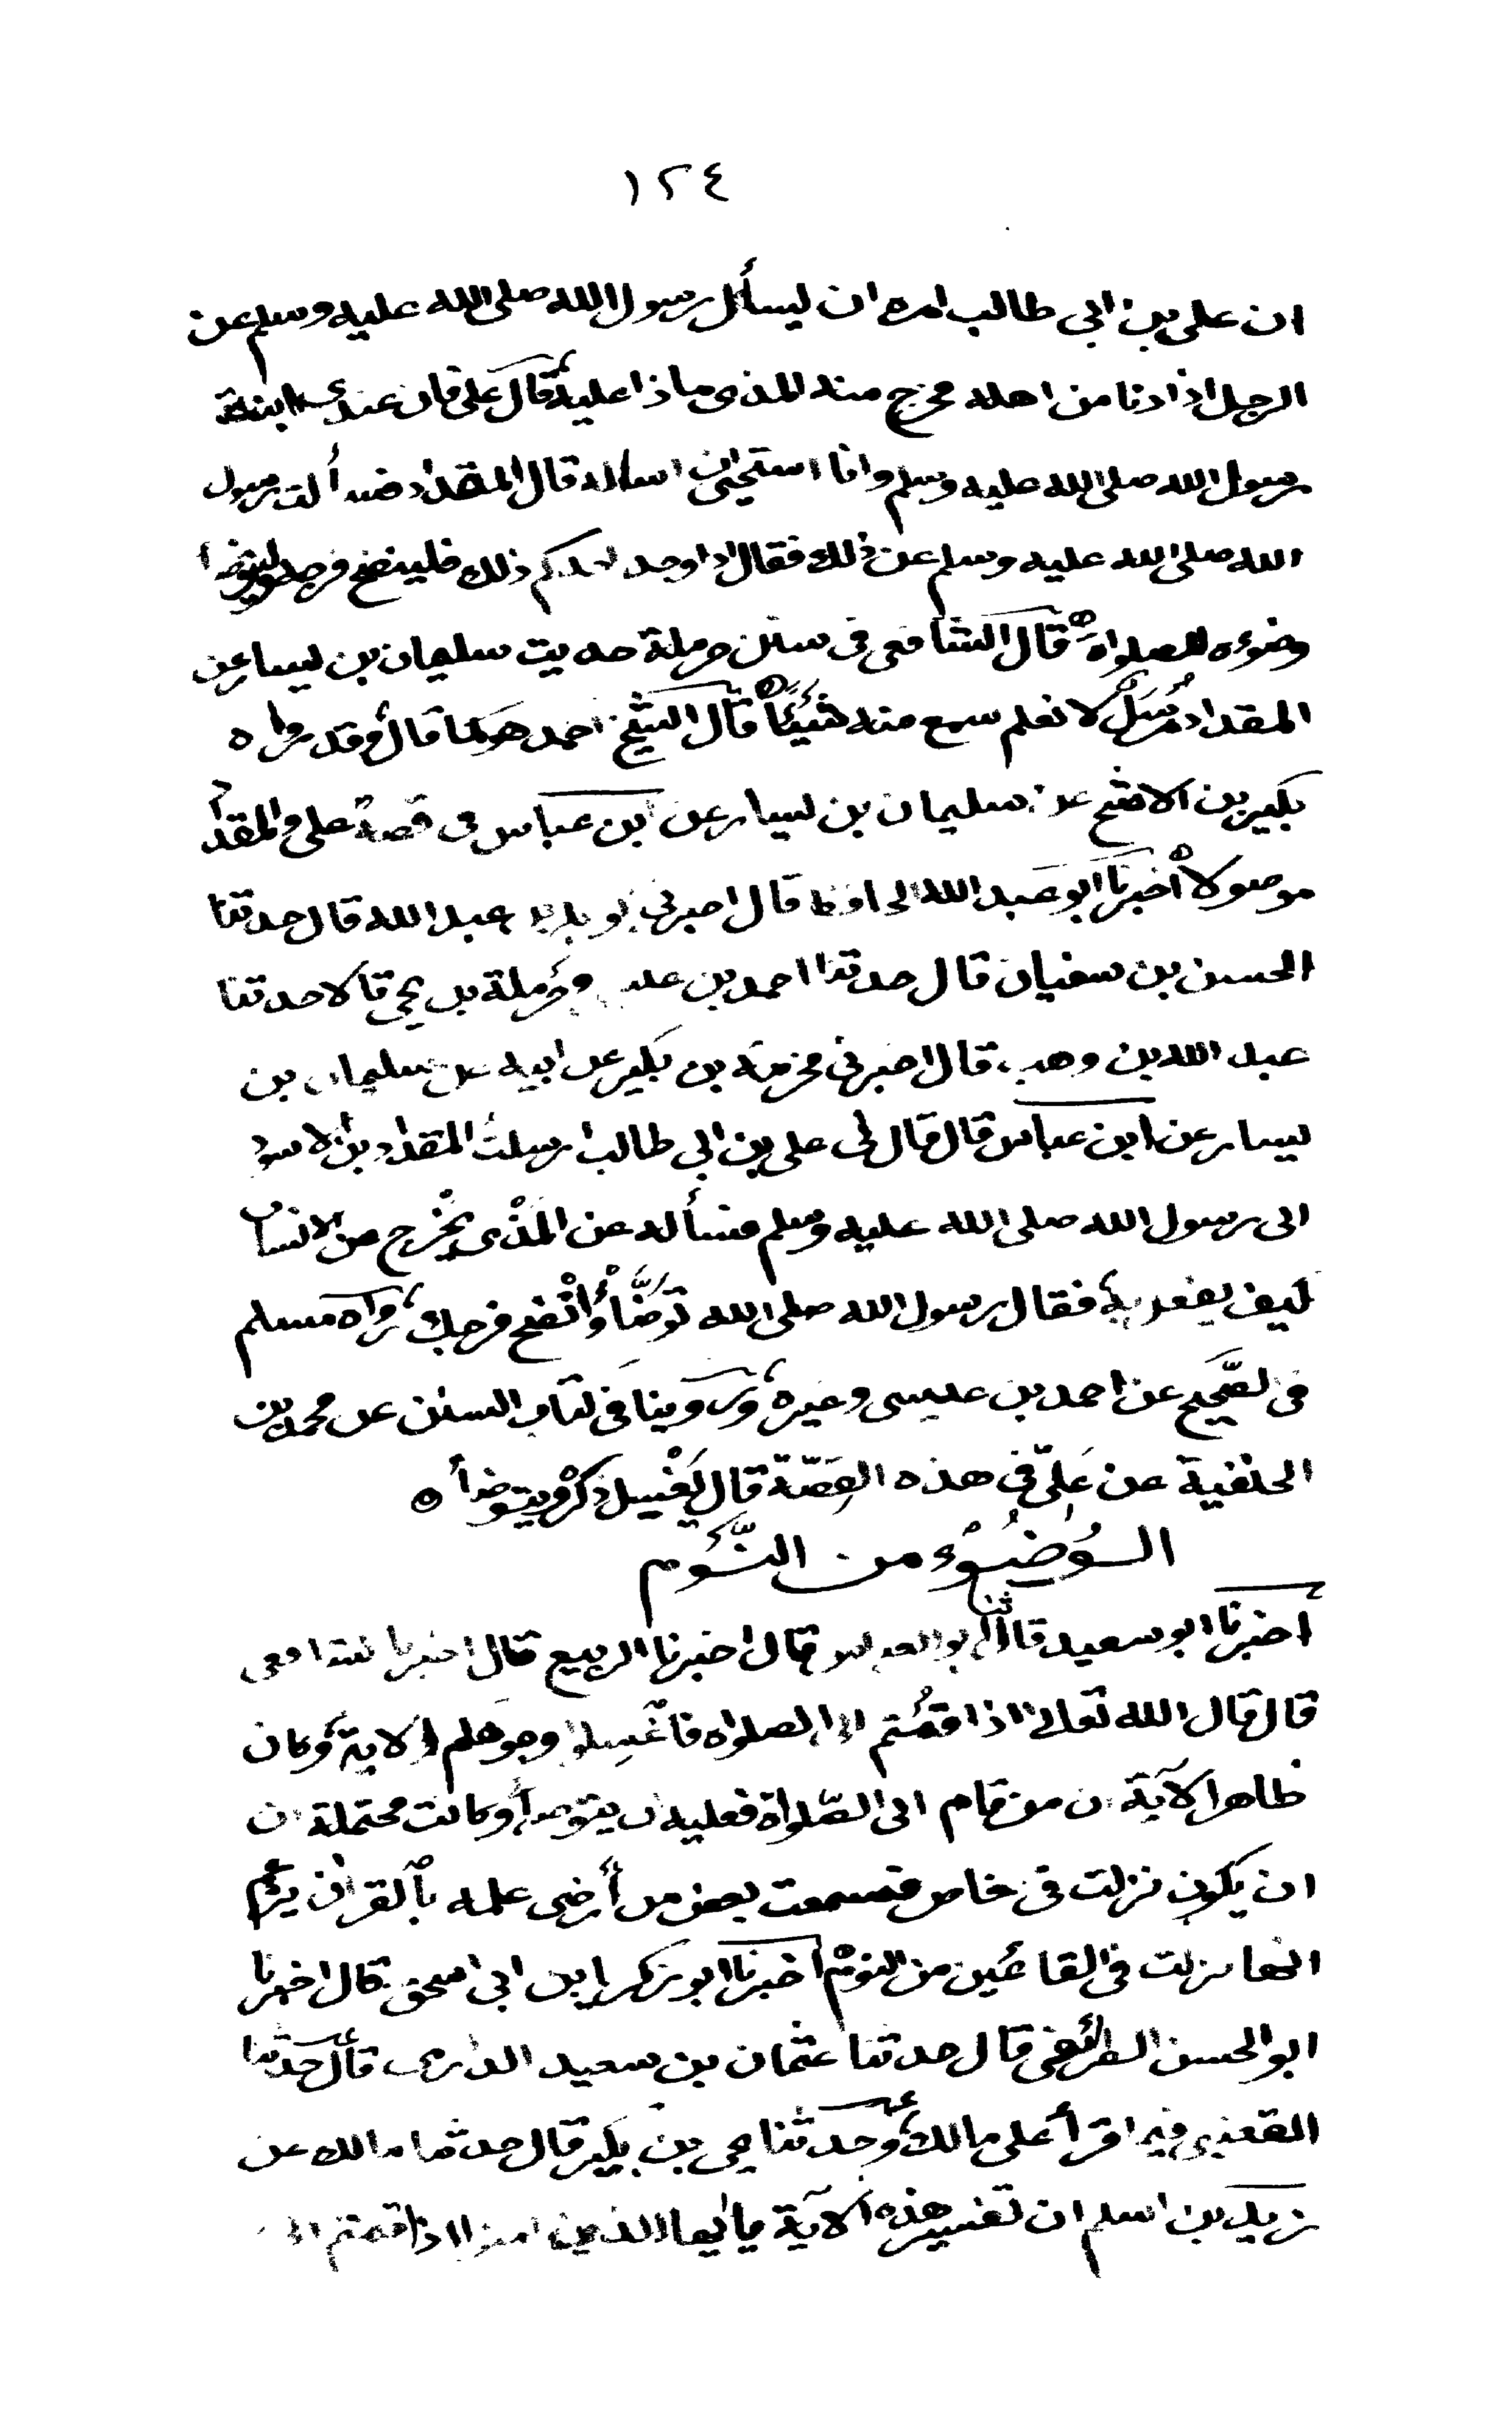 ١٢٤
ان على بن ابى طالب امره ان يسأل رسول الله صلى الله عليه وسلم عن
الرجل اذا دنا من اهله فخرج منه المذى ماذا عليه قال على فان عندى ابنة
رسول الله صلى الله عليه وسلم وانا استحيى ان اسأله قال المقداد فسألت رسول
الله صلى الله عليه وسلم عن ذلك فقال اذا وجد احدكم ذلك فلينضح فرجه وليتوضأ
وضوءه للصلواة ه قال الشافعى فى سنن حرملة حديث سليمان بن يسار عن
المقداد مُرسَلٌ لا نعلم سمع منه شيئًا ه قال الشيخ احمد هو كما قال وقد رواه
بكير بن الاشج عن سليمان بن يسار عن ابن عباس فى قصة على والمقداد
موصولا ه اخبرنا ابو عبد الله الحافظ قال اخبرنى ابو بكر بن عبد الله قال حدثنا
الحسن بن سفيان قال حدثنا احمد بن عيسى وحرملة بن يحيى قالا حدثنا
عبد الله بن وهب قال اخبرنى مخرمة بن بكير عن ابيه عن سليمان بن
يسار عن ابن عباس قال قال لى على بن ابى طالب ارسلت المقداد بن الاسود
الى رسول الله صلى الله عليه وسلم فسأله عن المَذْى يخْرج من الانسان
كيف يفعل به فقال رسول الله صلى الله توضَّأْ وانْضح فرجك رواه مسلم
فى الصَّحيح عن احمد بن عيسى وغيره وروينا فى كتاب السنن عن محمد بن
الحنفية عن عَلِىّ فى هذه القِصّة قال يَغْسِل ذكره ويتوضأ ه
الوُضُوْء من النَّوْم
اخبرنا ابو سعيد قال ثنا ابو العباس قال اخبرنا الربيع قال اخبرنا الشافعى
قال قال الله تعالى اذا قمُتم الى الصلواه فاغْسِلوا وجوهكم الآية وكان
ظاهر الآية ان من قام الى الصّلواة فعليه ان يتوضأ وكانت محتملة ان
ان يكون نزلت فى خاص فسمعت بعض من أرضى علمه بالقران يزعم
انها نزلت فى القائمين من النوم ه اخبرنا ابو زكريا بن ابى اسحق قال اخبرنا
ابو الحسن الطرائفى قال حدثنا عثمان بن سعيد الدارمى قال حدثنا
القعنبى فيما قرأ على مالك ح وحدثنا يحيى بن بكير قال حدثنا مالك عن
زيد بن اسلم ان تفسير هذه الآية يا ايها الذين امنوا اذا قمتم الى